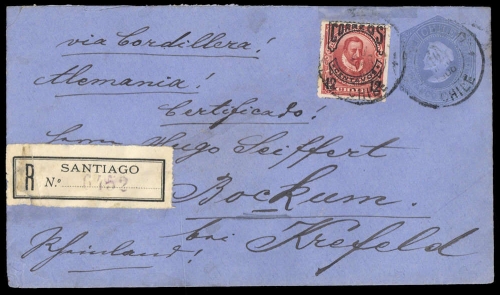 via Cordillera!
CORREOS
Alemania!
CHILE
Certificado!
Herrn Hugo Seiffert
SANTIAGO
R
N.º
Bockum.
Rheinland!
bei Krefeld